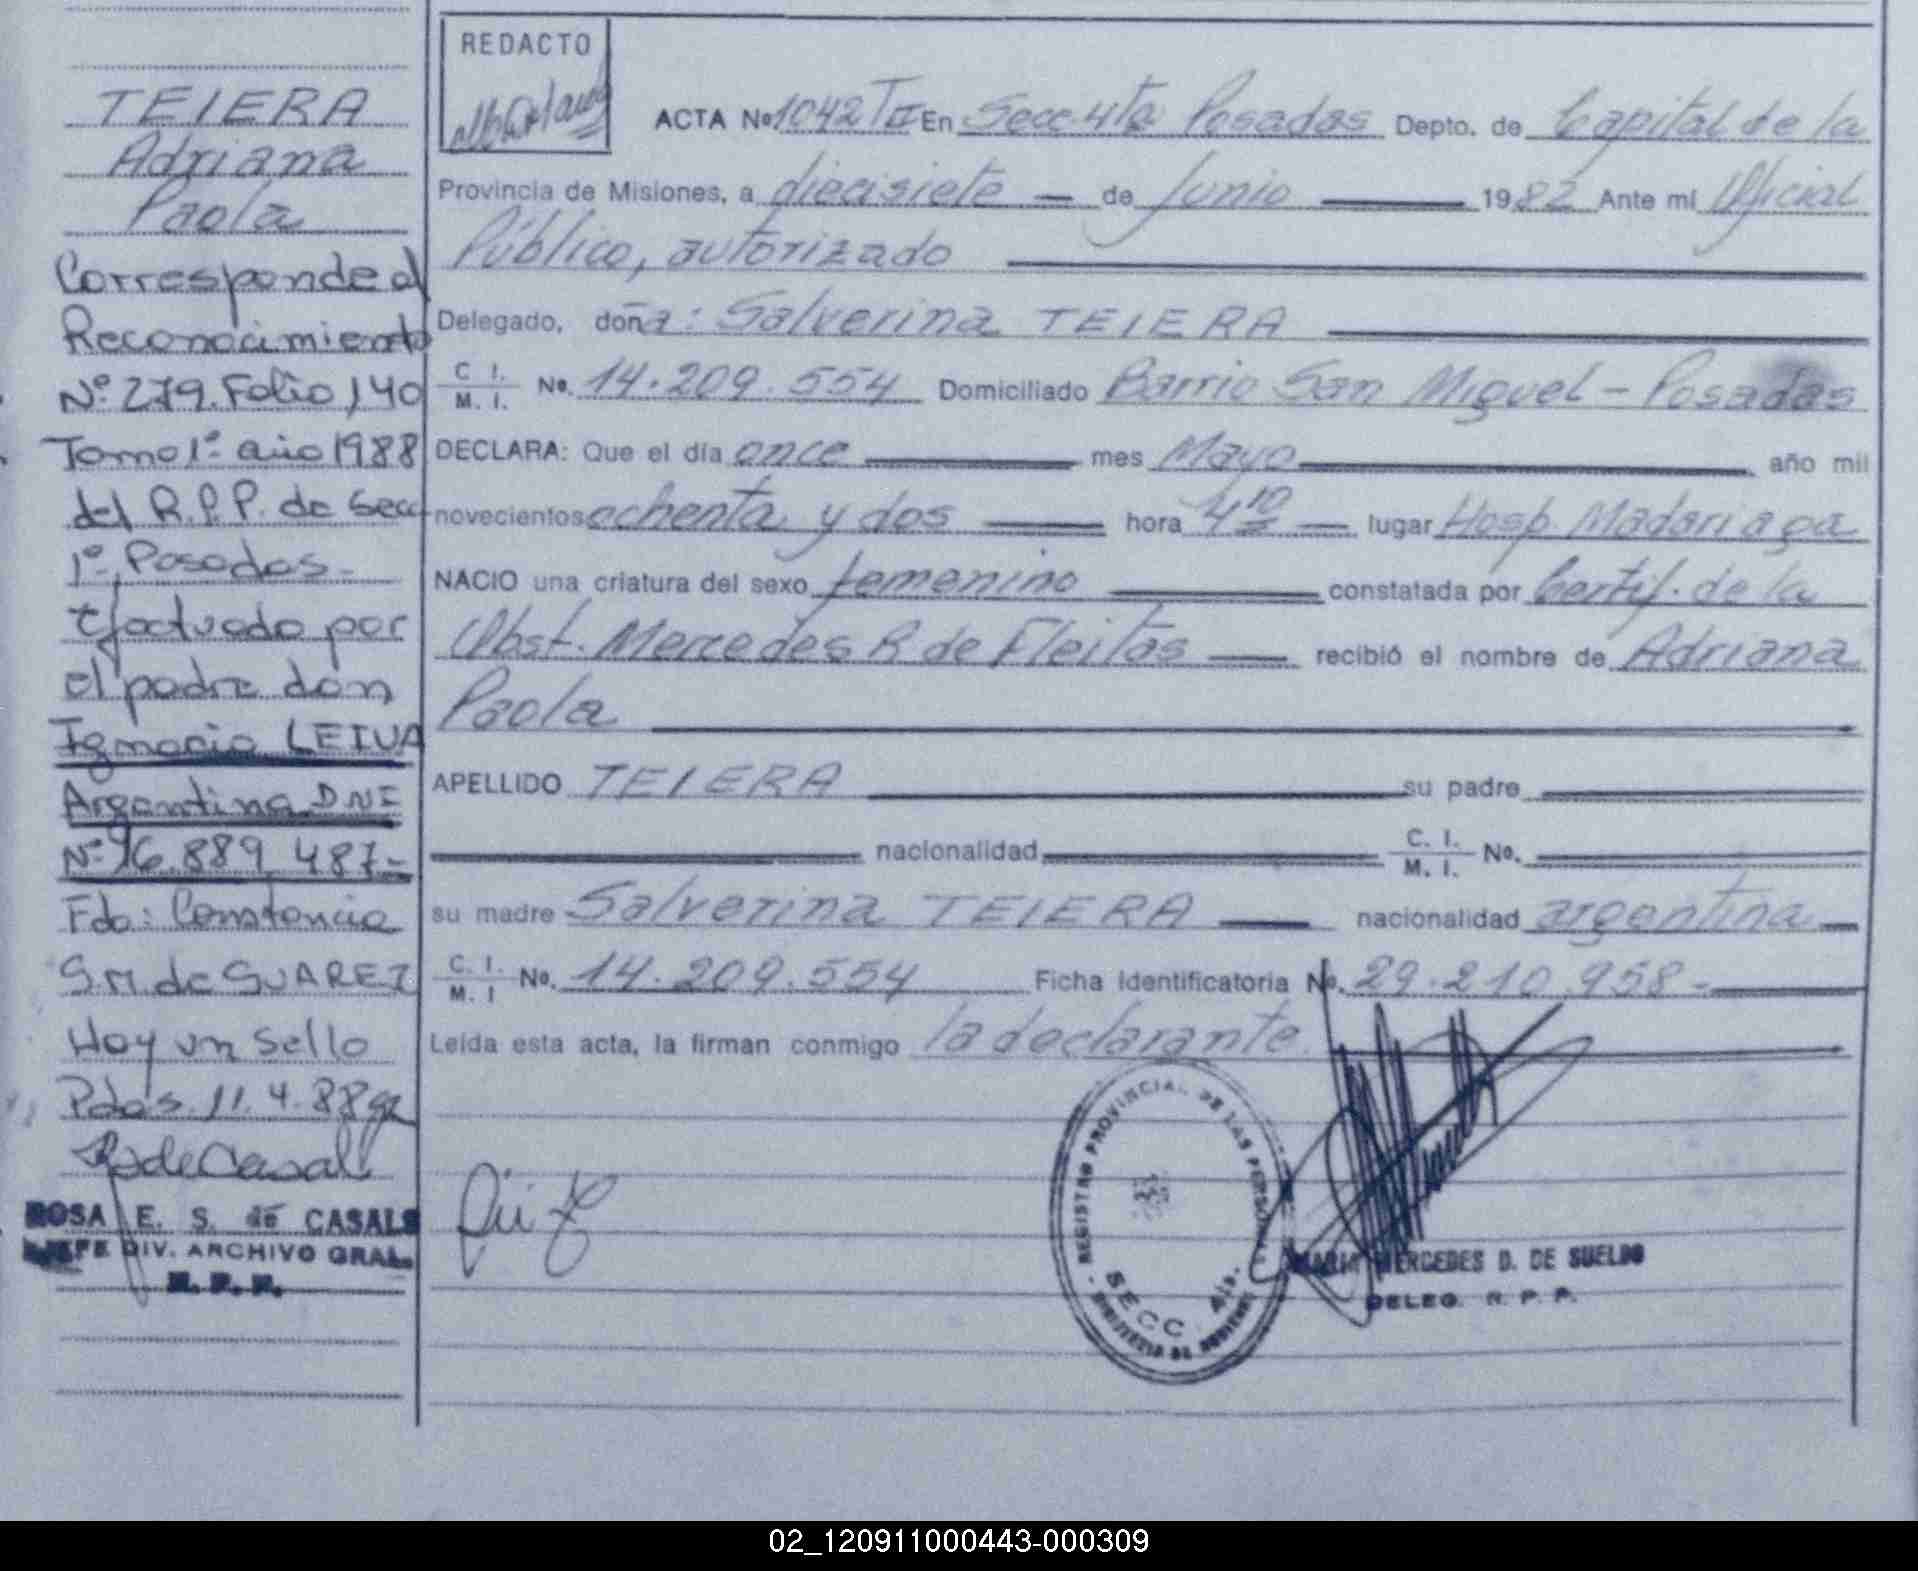 TEIERA
Adriana
Paola
Corresponde al
Reconocimiento
Nº 279. Folio 140
Tomo 1º año 1988
del R.P.P. de Secc
1º, Posadas-
Efectuado por
el padre don
Ignacio LEIVA
Argentina DNI
Nº 16.889.487-
Fdo: Constancia
S.M. de SUAREZ
Hay un Sello
Pdas. 11.4.88
R S de Casals
ROSA E. S. de CASALS
JEFE DIV. ARCHIVO GRAL.
R. P. P.
REDACTO
ACTA Nº 1042 T II En Secc 4ta Posadas Depto. de Capital de la
Provincia de Misiones, a diecisiete — de Junio — 1982 Ante mi Oficial
Público, autorizado
Delegado, doña: Salverina TEIERA
C. I. M. I. No. 14.209.554 Domiciliado Barrio San Miguel - Posadas
DECLARA: Que el día once — mes Mayo — año mil
novecientos ochenta y dos — hora 4 10 — lugar Hosp. Madariaga
NACIO una criatura del sexo femenino — constatada por Certif. de la
Obst. Mercedes R de Fleitas — recibió el nombre de Adriana
Paola
APELLIDO TEIERA — su padre
nacionalidad — C. I. M. I. No.
su madre Salverina TEIERA — nacionalidad argentina —
C. I. M. I No. 14.209.554 Ficha Identificatoria No. 29.210.958 -
Leída esta acta, la firman conmigo la declarante.
REGISTRO PROVINCIAL DE LAS PERSONAS
SECC. 4ta.
MARIA MERCEDES D. DE SUELDO
DELEG. R. P. P.
02_120911000443-000309